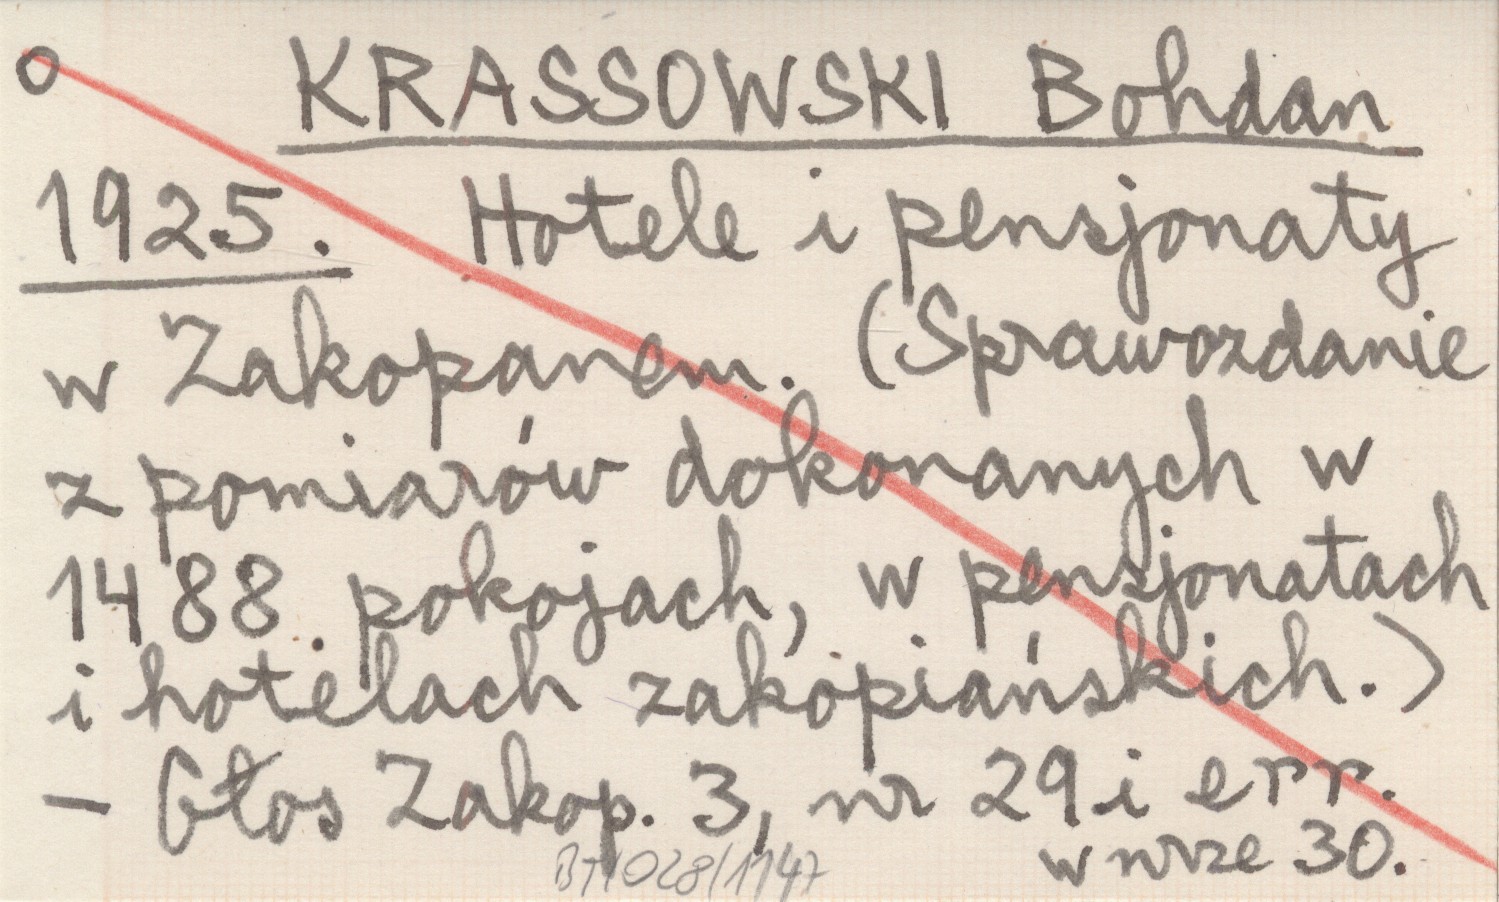 o KRASSOWSKI Bohdan
1925. Hotele i pensjonaty
w Zakopanem. (Sprawozdanie
z pomiarów dokonanych w
1488 pokojach, w pensjonatach
i hotelach zakopiańskich.)
- Głos Zakop. 3, nr 29 i err.
w nrze 30.
BT/028/1147